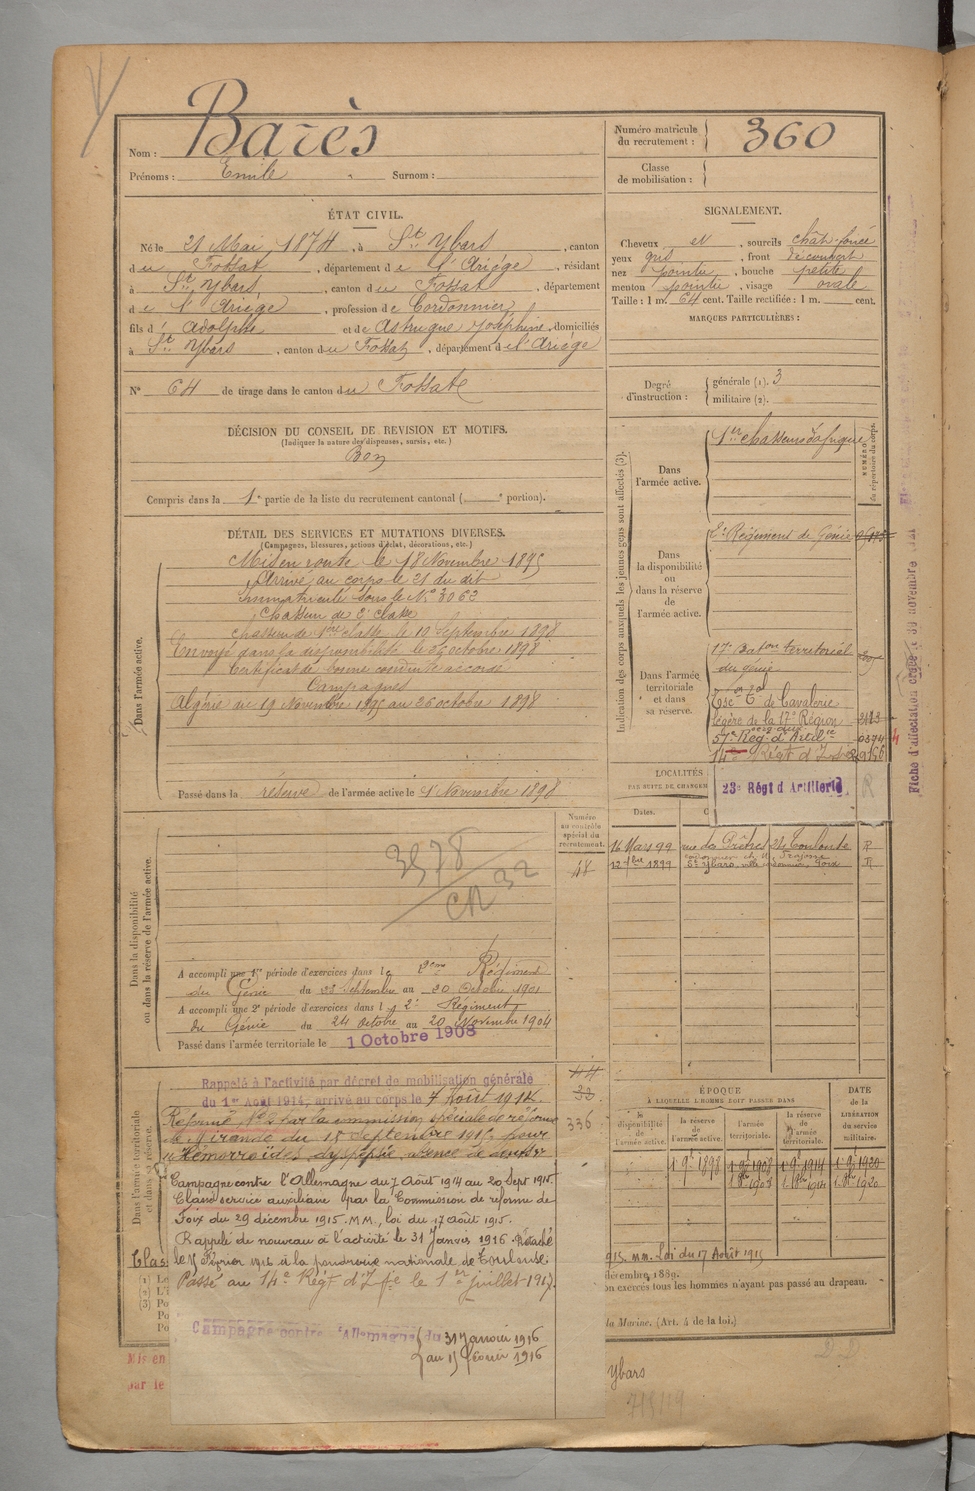 Nom : Barès
Prénoms : Emile Surnom :
Numéro matricule du recrutement : 360
Classe de mobilisation :
ÉTAT CIVIL.
Né le 21 Mai 1874, à St. Ybars, canton
du Fossat, département de l'Ariège, résidant
à St. Ybars, canton du Fossat, département
de l'Ariège, profession de Cordonnier
fils d' Adolphe et de Astrugue Joséphine, domiciliés
à St. Ybars, canton du Fossat, département de l'Ariège
N° 64 de tirage dans le canton du Fossat
SIGNALEMENT.
Cheveux et, sourcils chât. foncé
yeux gris, front découvert
nez pointu, bouche petite
menton pointu, visage ovale
Taille : 1 m. 64 cent. Taille rectifiée : 1 m. cent.
MARQUES PARTICULIÈRES :
Degré d'instruction : générale (1). 3
militaire (2).
DÉCISION DU CONSEIL DE REVISION ET MOTIFS.
(Indiquer la nature des dispenses, sursis, etc.)
Bon
Compris dans la 1e partie de la liste du recrutement cantonal ( e portion).
DÉTAIL DES SERVICES ET MUTATIONS DIVERSES.
(Campagnes, blessures, actions d'éclat, décorations, etc.)
Dans l'armée active.
Mis en route le 18 Novembre 1895
Arrivé au corps le 21 du dit
Immatriculé sous le N° 3063
Chasseur de 2e classe
chasseur de 1ère classe le 19 Septembre 1898
Envoyé dans la disponibilité le 26 octobre 1898
Certificat de bonne conduite accordé
Campagnes
Algérie du 19 Novembre 1895 au 26 octobre 1898
Passé dans la réserve de l'armée active le 1 Novembre 1898
Indication des corps auxquels les jeunes gens sont affectés (3).
NUMÉRO du répertoire du corps.
Dans l'armée active.
1er chasseurs d'afrique
Dans la disponibilité ou dans la réserve de l'armée active.
2e Régiment de Génie
Dans l'armée territoriale et dans sa réserve.
17e Baton territorial
du génie
Esc. de Cavalerie
légère de la 17e Région 3123
57e Rég. d'Artil. 0374
14e Régt d'Inf
23e Régt d'Artillerie
R
Fiche d'affectation
novembre
LOCALITÉS
PAR SUITE DE CHANGEM
Dates.
16 Mars 99 rue des Prêtres 21 Toulouse R
12 7bre 1899 St Ybars, Foix R
Dans la disponibilité ou dans la réserve de l'armée active.
Numéro au contrôle spécial du recrutement.
48
3978
CR 32
A accompli une 1re période d'exercices dans le 2ème Régiment
du Génie du 23 Septembre au 20 Octobre 1901
A accompli une 2e période d'exercices dans le 2e Régiment
du Génie du 24 Octobre au 20 Novembre 1904
Passé dans l'armée territoriale le 1 Octobre 1908
Dans l'armée territoriale et dans sa réserve.
44
33
336
Rappelé à l'activité par décret de mobilisation générale
du 1er Août 1914, arrivé au corps le 7 Août 1914
Réformé N°2 par la commission spéciale de réforme
de Mirande du 15 Septembre 1915 pour
Hémorroïdes, dyspepsie, absence de dents
Campagne contre l'Allemagne du 7 Août 1914 au 20 Sept 1915.
Classé service auxiliaire par la Commission de réforme de
Foix du 29 décembre 1915. MM, loi du 17 août 1915.
Rappelé de nouveau à l'activité le 31 Janvier 1916. Détaché
le 15 Février 1916 à la poudrerie nationale de Toulouse.
Passé au 14e Régt d'Ifie le 1er Juillet 1917.
Campagne contre l'Allemagne du 31 Janvier 1916
au 15 février 1916
ÉPOQUE
À LAQUELLE L'HOMME DOIT PASSER DANS
la disponibilité de l'armée active.
la réserve de l'armée active.
l'armée territoriale.
la réserve de l'armée territoriale.
DATE de la LIBÉRATION du service militaire.
1 9e 1898 1 9e 1908 1 9e 1914 1 9e 1920
1 8bre 1908 1 8bre 1914 1 8bre 1920
Clas
915. MM. Loi du 17 Août 1915
décembre 1889.
on exercés tous les hommes n'ayant pas passé au drapeau.
la Marine. (Art. 4 de la loi.)
(1) Le
(2) L'
(3) Po
Po
Po
Mis en
par le
Ybars